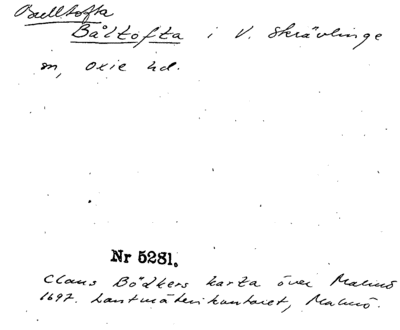 Bulltofta
Båltofta i V. Skrävlinge
sn, Oxie hd.
Nr 5281.
Claus Bödkers karta över Malmö
1697. Lantmäterikontoret, Malmö.